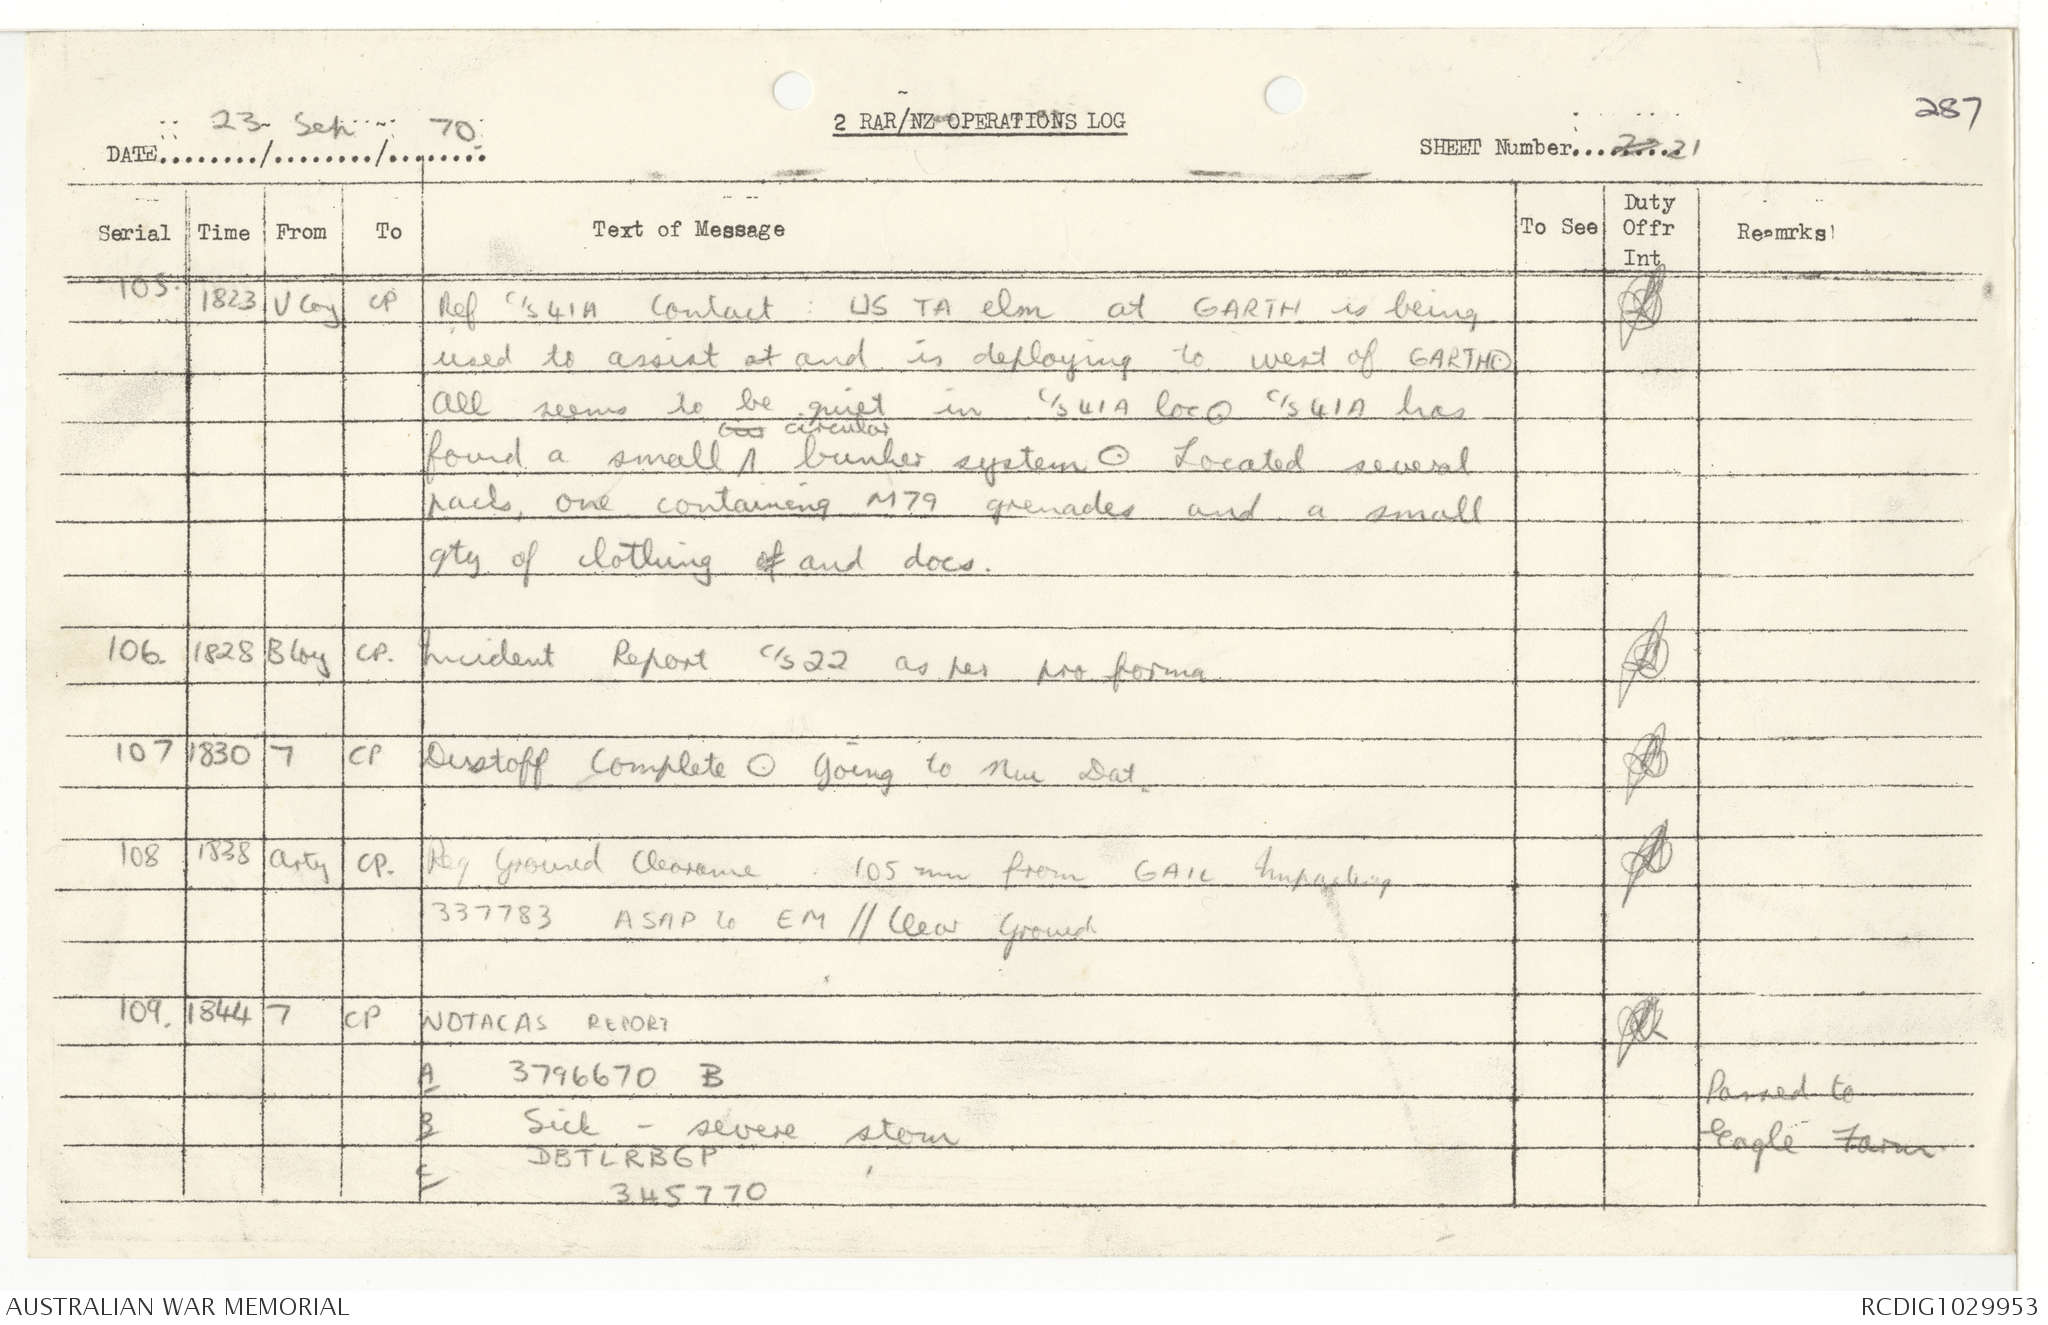 287
23 Sep 70
2 RAR/NZ OPERATIONS LOG
DATE......../......../........
SHEET Number... 22 21
Serial Time From To Text of Message To See Duty Offr Int Remrks
105. 1823 V Coy CP Ref C/S 41A Contact : US TA elm at GARTH is being
used to assist at and is deploying to west of GARTH ⊙
All seems to be quiet in C/S 41A loc ⊙ C/S 41A has
circular
found a small /\ bunker system ⊙ Located several
packs, one containing M79 grenades and a small
qty of clothing of and docs.
106. 1828 B Coy CP. Incident Report C/S 22 as per pro forma
107 1830 7 CP Dustoff Complete ⊙ Going to Nui Dat.
108 1838 Arty CP. Req Ground Clearance 105 mm from GAIL Impacting
337783 ASAP to EM // Clear Ground
109. 1844 7 CP NOTACAS REPORT
A 3796670 B
Passed to
B Sick - severe stom
Eagle Farm
C DBTLRBGP
345770
AUSTRALIAN WAR MEMORIAL
RCDIG1029953